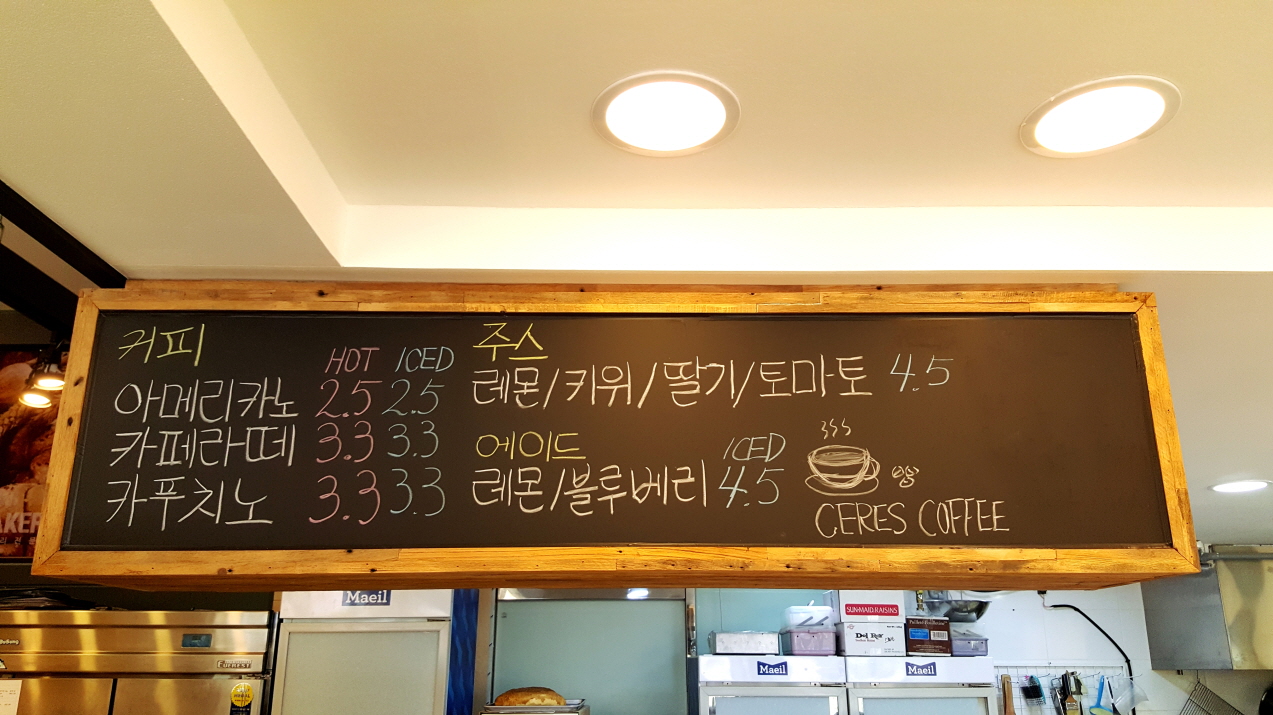 커피
HOT ICED
아메리카노 2.5 2.5
카페라떼 3.3 3.3
카푸치노 3.3 3.3
주스
레몬/키위/딸기/토마토 4.5
에이드 ICED
레몬/블루베리 4.5
CERES COFFEE
AKER
Maeil
SUN-MAID RAISINS
Maeil
Maeil
EVEREST